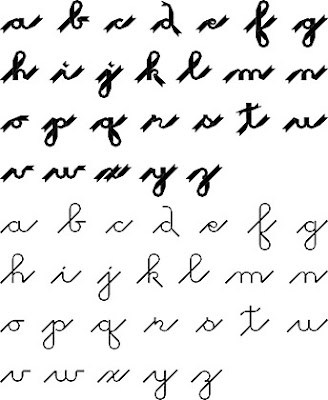 a b c d e f g
h i j k l m n
o p q r s t u
v w x y z
a b c d e f g
h i j k l m n
o p q r s t u
v w x y z